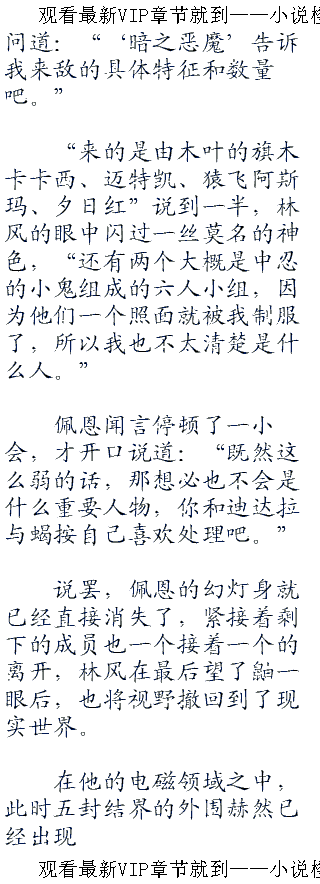 观看最新VIP章节就到——小说检
问道：“‘暗之恶魔’告诉
我来敌的具体特征和数量
吧。”
“来的是由木叶的旗木
卡卡西、迈特凯、猿飞阿斯
玛、夕日红”说到一半，林
风的眼中闪过一丝莫名的神
色，“还有两个大概是中忍
的小鬼组成的六人小组，因
为他们一个照面就被我制服
了，所以我也不太清楚是什
么人。”
佩恩闻言停顿了一小
会，才开口说道：“既然这
么弱的话，那想必也不会是
什么重要人物，你和迪达拉
与蝎按自己喜欢处理吧。”
说罢，佩恩的幻灯身就
已经直接消失了，紧接着剩
下的成员也一个接着一个的
离开，林风在最后望了鼬一
眼后，也将视野撤回到了现
实世界。
在他的电磁领域之中，
此时五封结界的外围赫然已
经出现
观看最新VIP章节就到——小说检